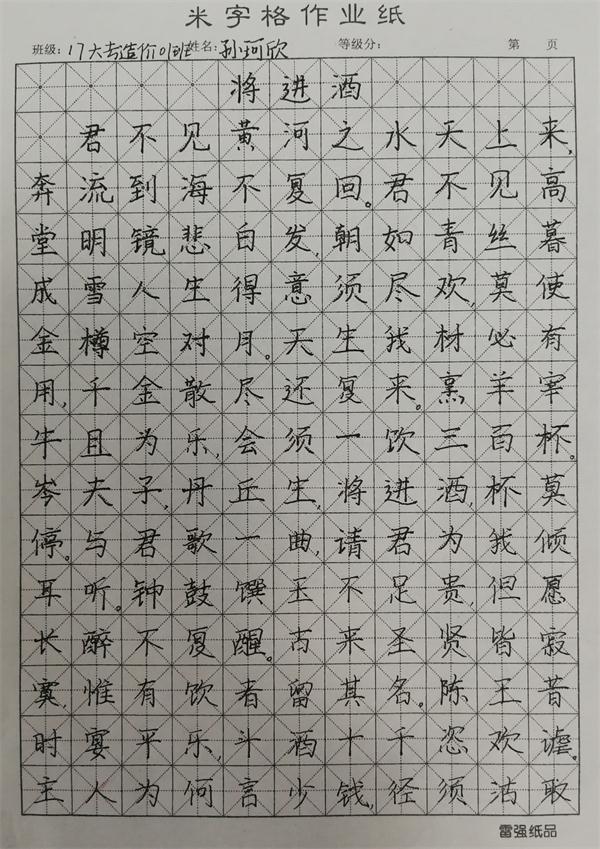 米字格作业纸
班级：17大专造价01班 姓名：孙珂欣 等级分： 第 页
将进酒
君不见黄河之水天上来，
奔流到海不复回。君不见高
堂明镜悲白发，朝如青丝暮
成雪人生得意须尽欢，莫使
金樽空对月。天生我材必有
用，千金散尽还复来。烹羊宰
牛且为乐，会须一饮三百杯。
岑夫子，丹丘生，将进酒，杯莫
停。与君歌一曲，请君为我倾
耳听。钟鼓馔玉不足贵，但愿
长醉不复醒。古来圣贤皆寂
寞，惟有饮者留其名。陈王昔
时宴平乐，斗酒十千恣欢谑。
主人为何言少钱，径须沽取
雷强纸品